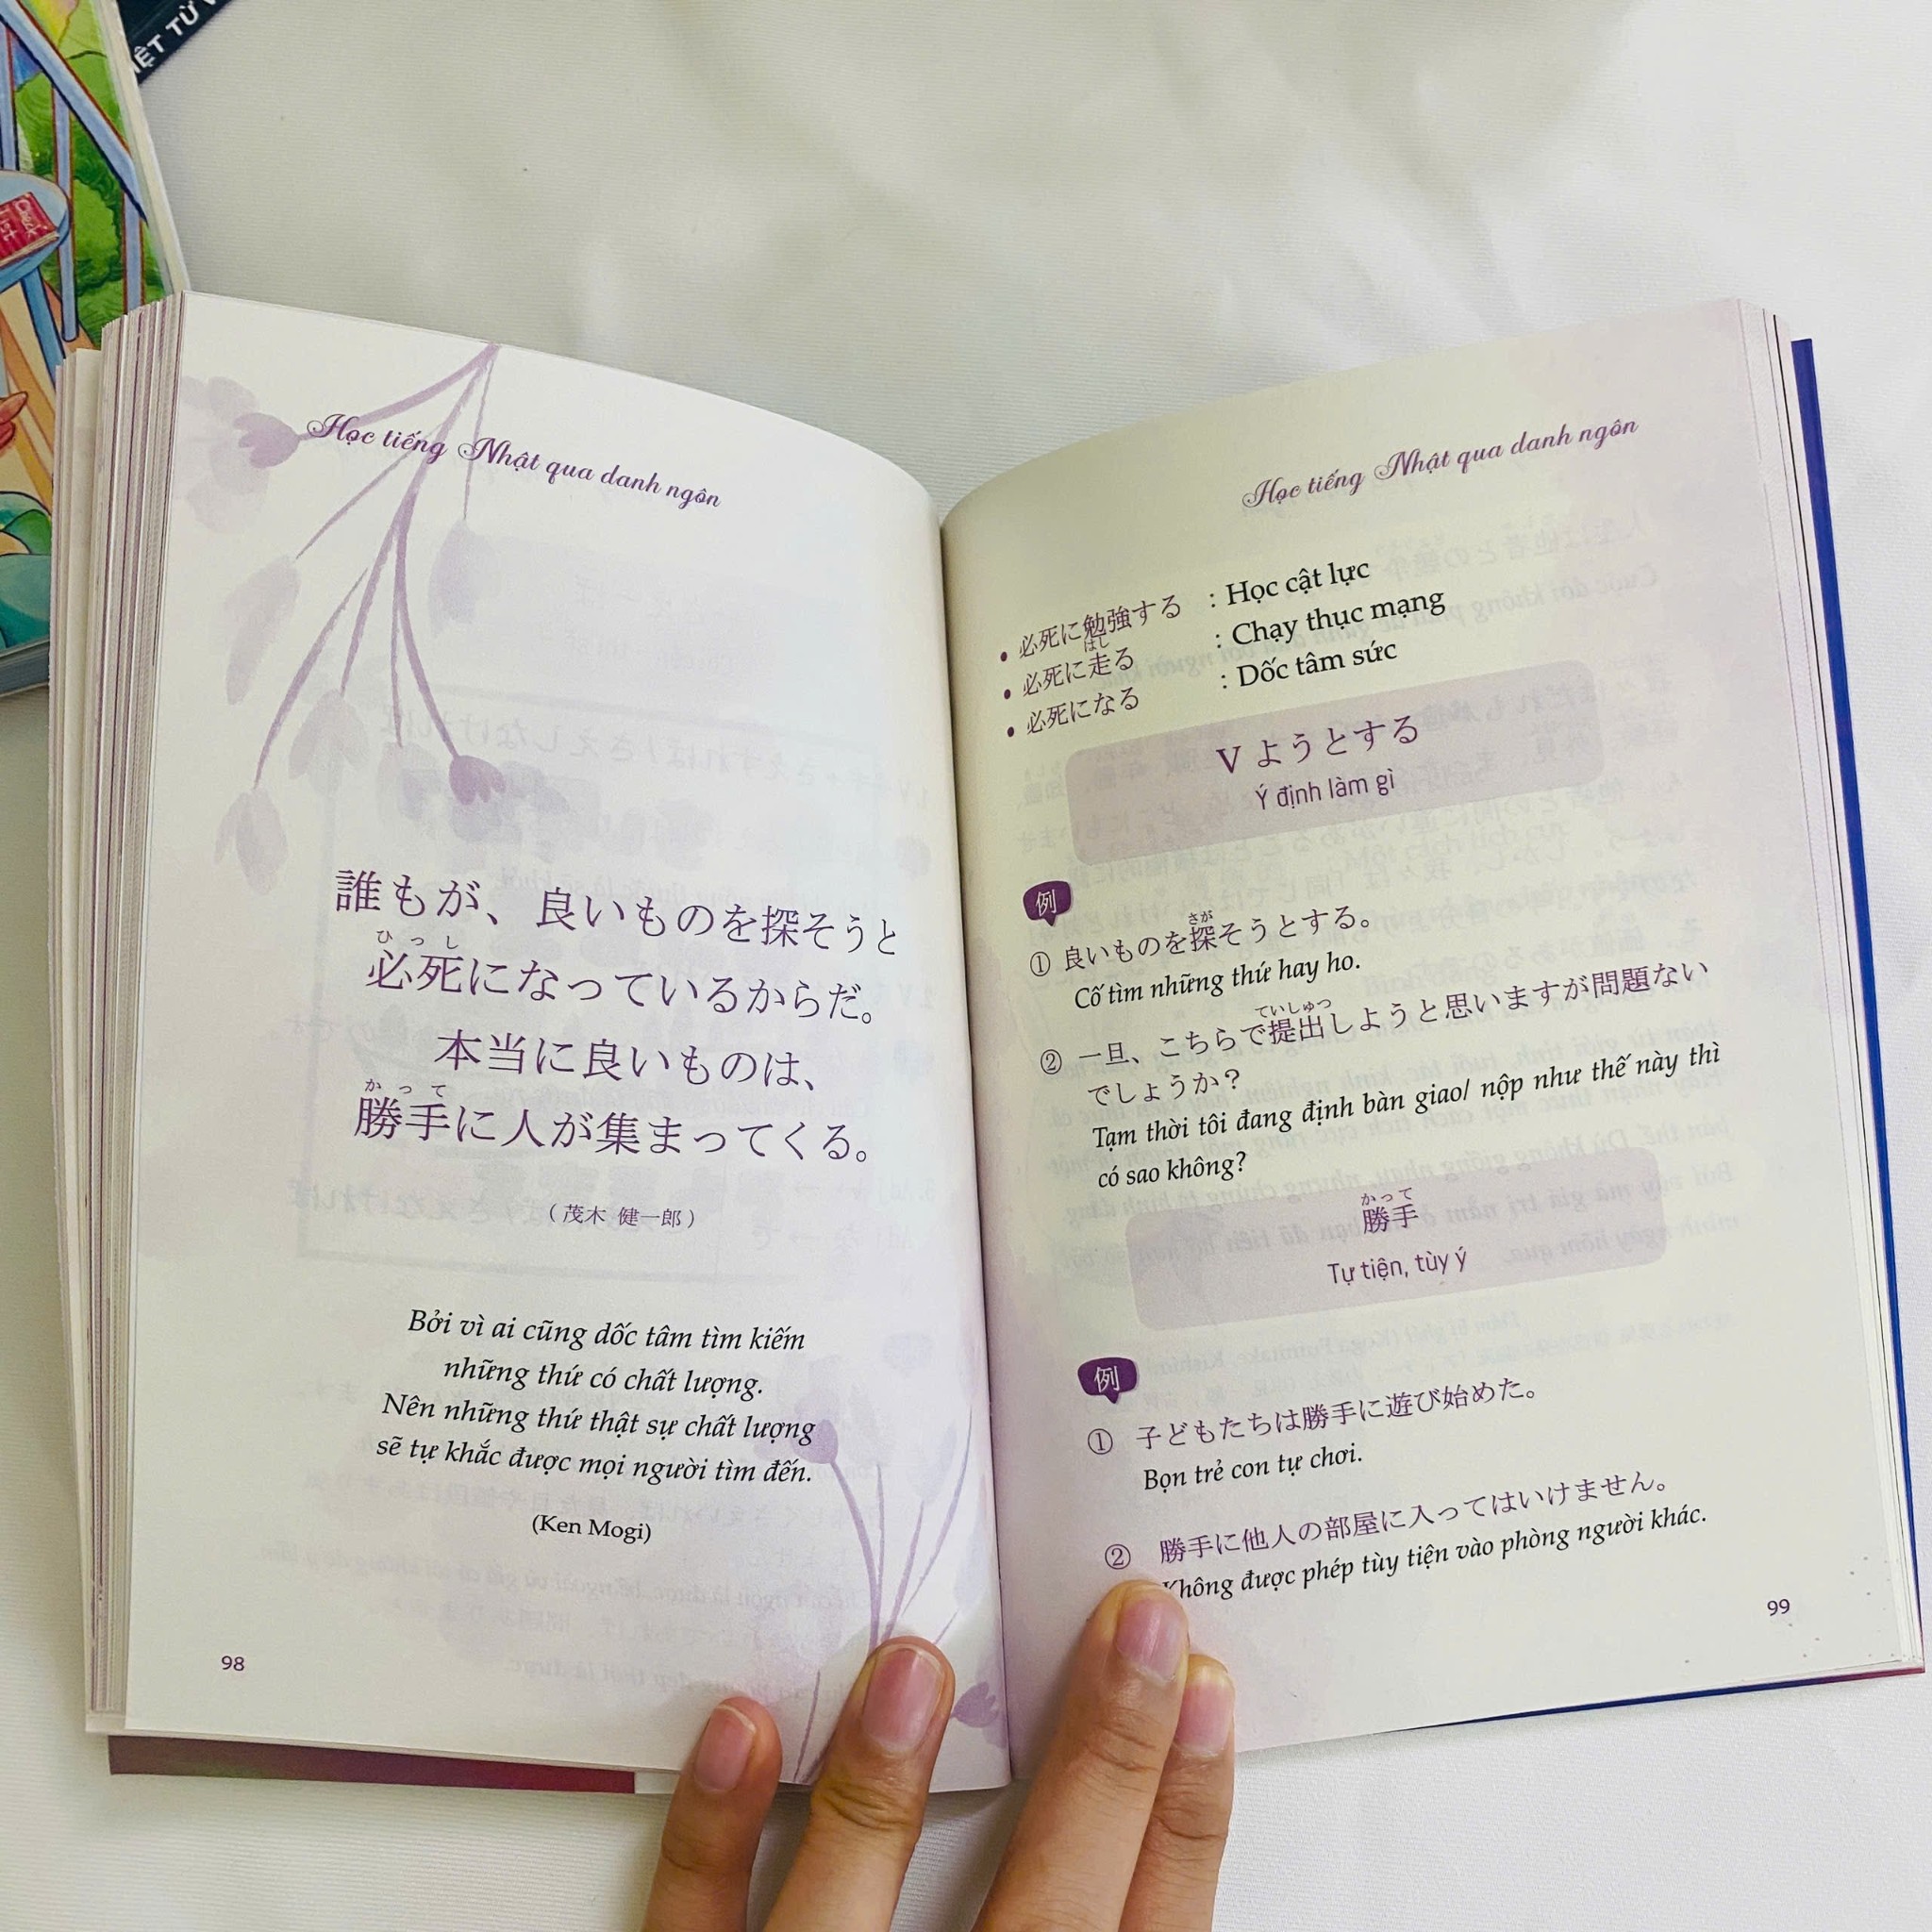 IỆT TỪ V
Check
List
Học tiếng Nhật qua danh ngôn
誰もが、良いものを探そうと
ひっし
必死になっているからだ。
本当に良いものは、
かって
勝手に人が集まってくる。
(茂木 健一郎)
Bởi vì ai cũng dốc tâm tìm kiếm
những thứ có chất lượng.
Nên những thứ thật sự chất lượng
sẽ tự khắc được mọi người tìm đến.
(Ken Mogi)
98
Học tiếng Nhật qua danh ngôn
• 必死に勉強する : Học cật lực
はし
• 必死に走る : Chạy thục mạng
• 必死になる : Dốc tâm sức
V ようとする
Ý định làm gì
例
さが
① 良いものを探そうとする。
Cố tìm những thứ hay ho.
ていしゅつ
② 一旦、こちらで提出しようと思いますが問題ない
でしょうか?
Tạm thời tôi đang định bàn giao/ nộp như thế này thì
có sao không?
かって
勝手
Tự tiện, tùy ý
例
① 子どもたちは勝手に遊び始めた。
Bọn trẻ con tự chơi.
② 勝手に他人の部屋に入ってはいけません。
Không được phép tùy tiện vào phòng người khác.
99